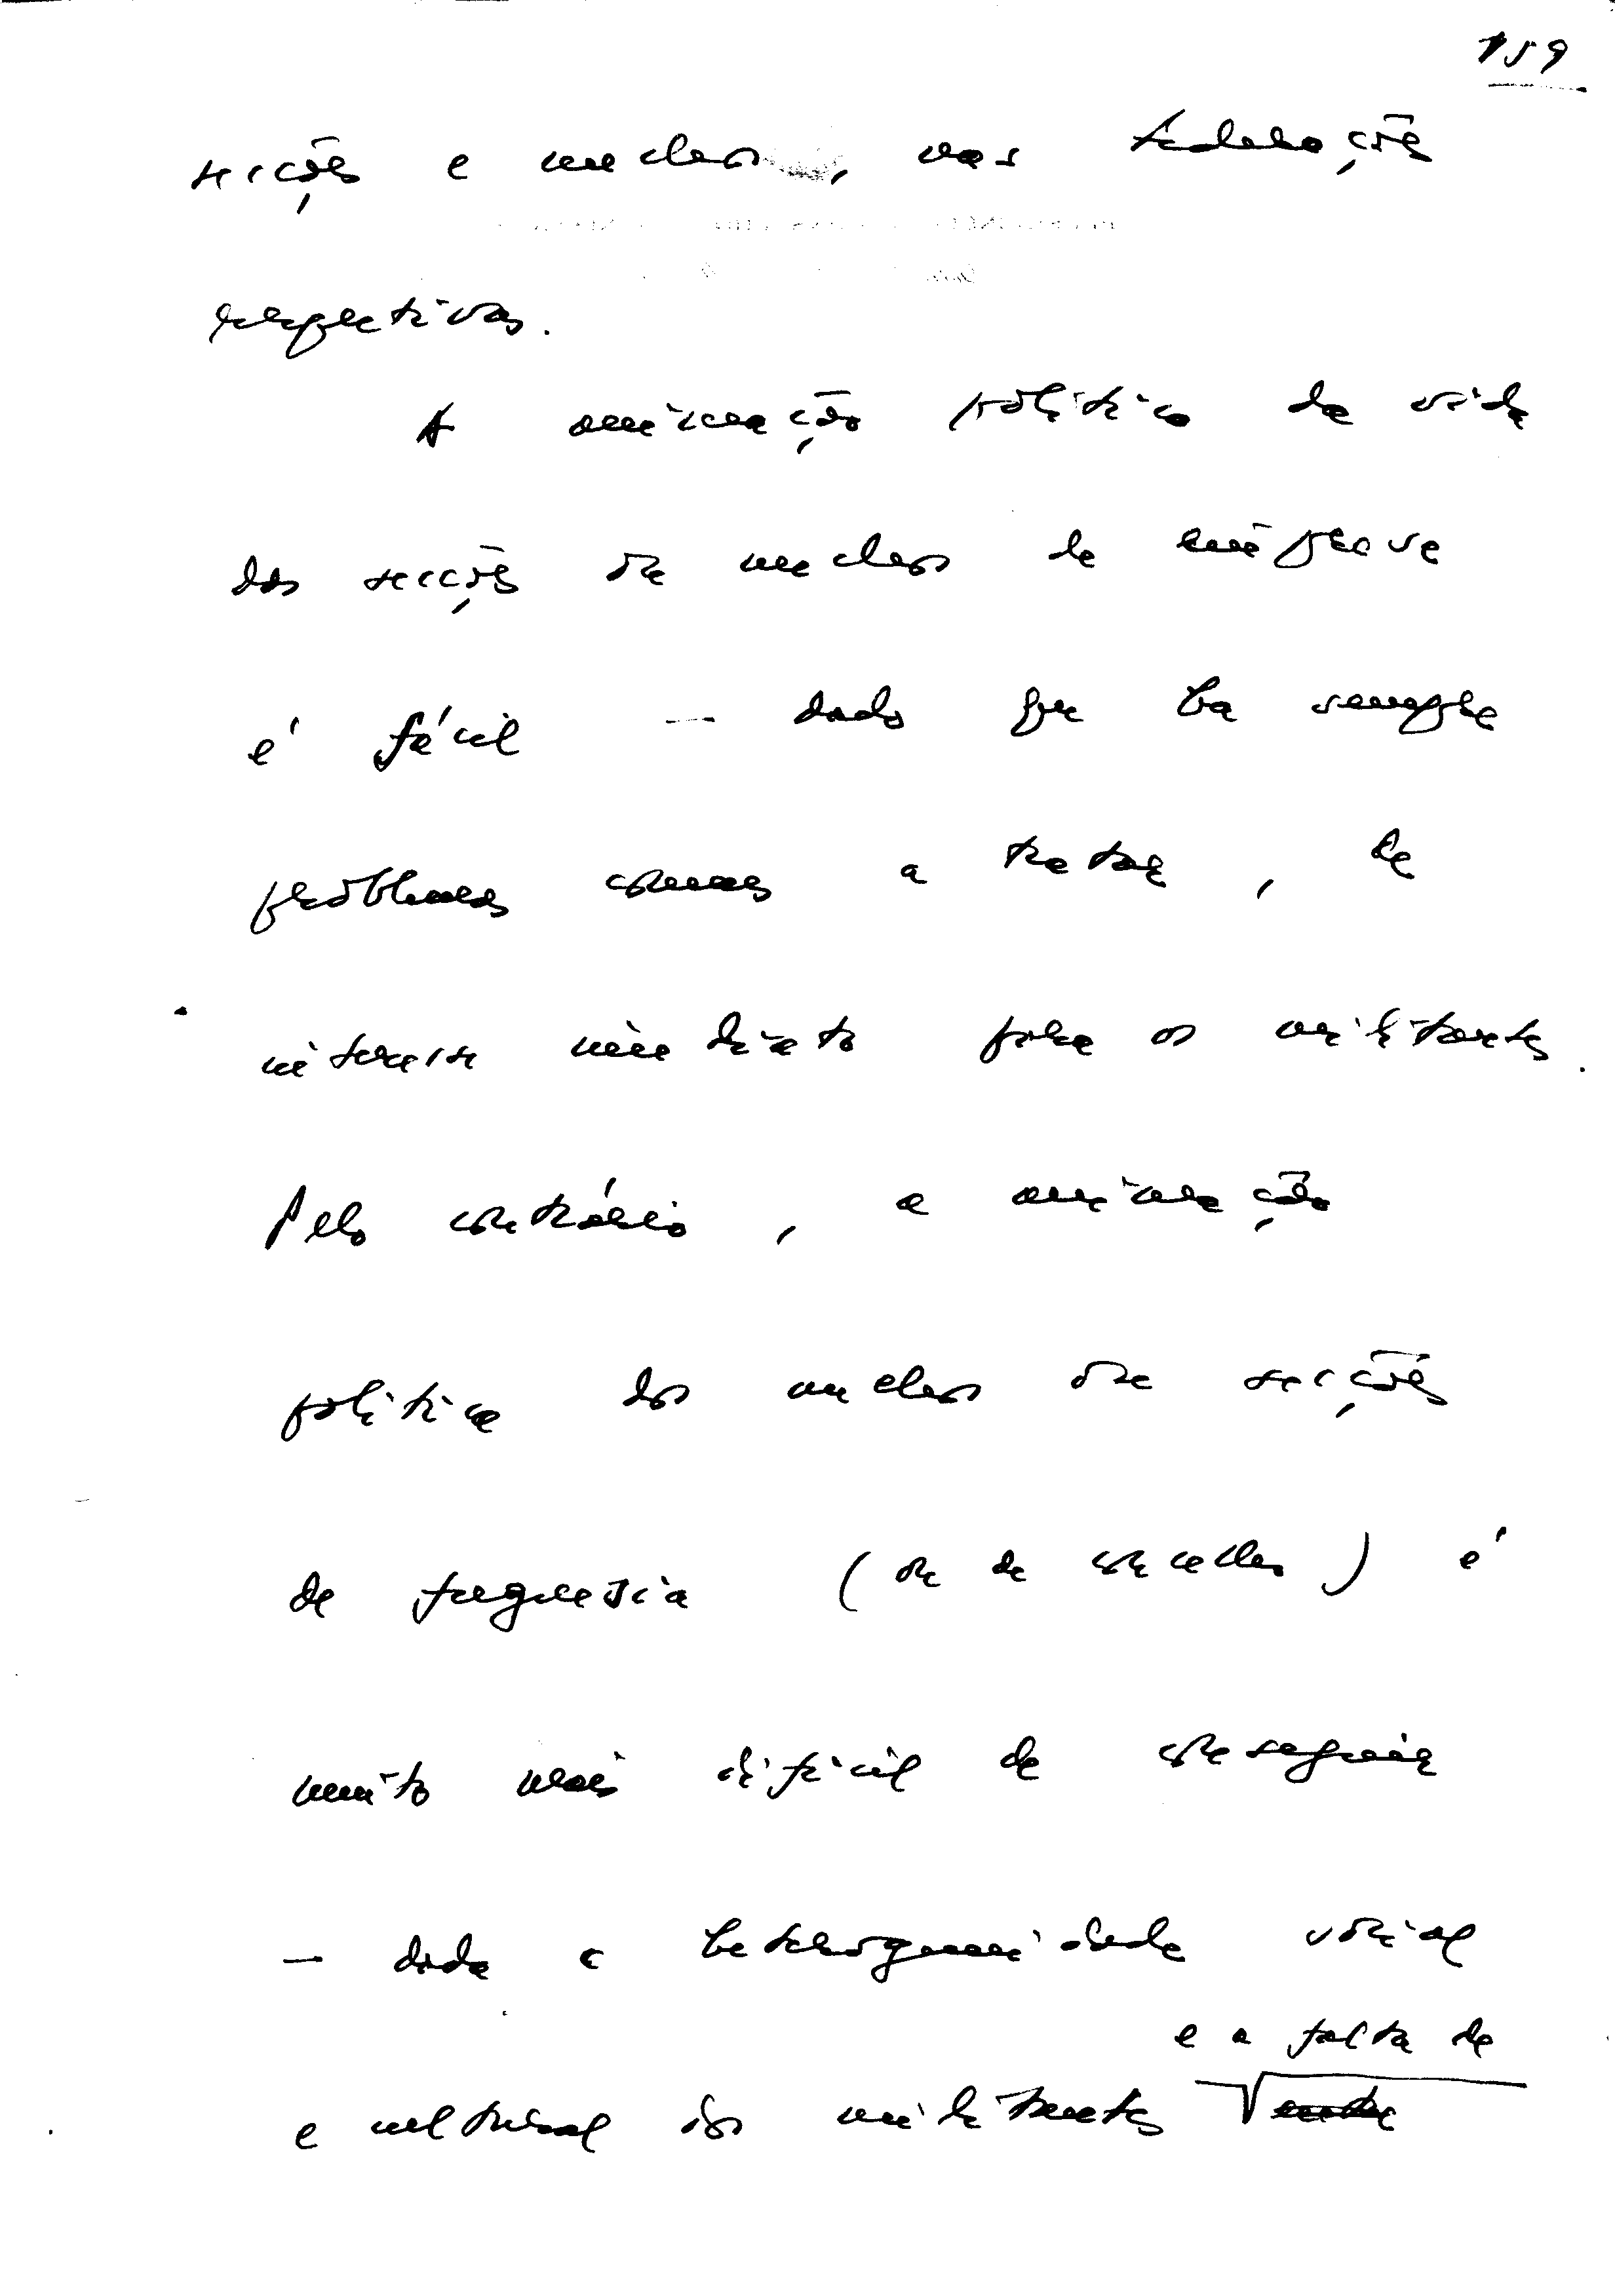 159
secções e nucleos, nas federações
respectivas.
A animação política da vida
das secções ou nucleos de empresa
é fácil — dado que há sempre
problemas comuns a tratar, de
interesse imediato para os militantes.
Pelo contrário, a animação
politica dos nucleos ou secções
de freguesia (ou de concelho) é
muito mais difícil de conseguir
— dada a heterogeneidade social
e a falta de
e cultural dos militantes